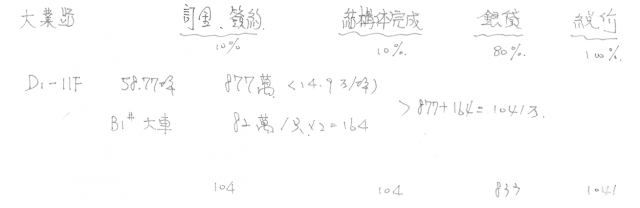 大業路 訂金、簽約 結構体完成 銀貸 總价
10% 10% 80% 100%
D1-11F 58.77坪 877萬 <14.9万/坪)
B1# 大車 82萬/只×2=164 >877+164=1041万
104 104 833 1041